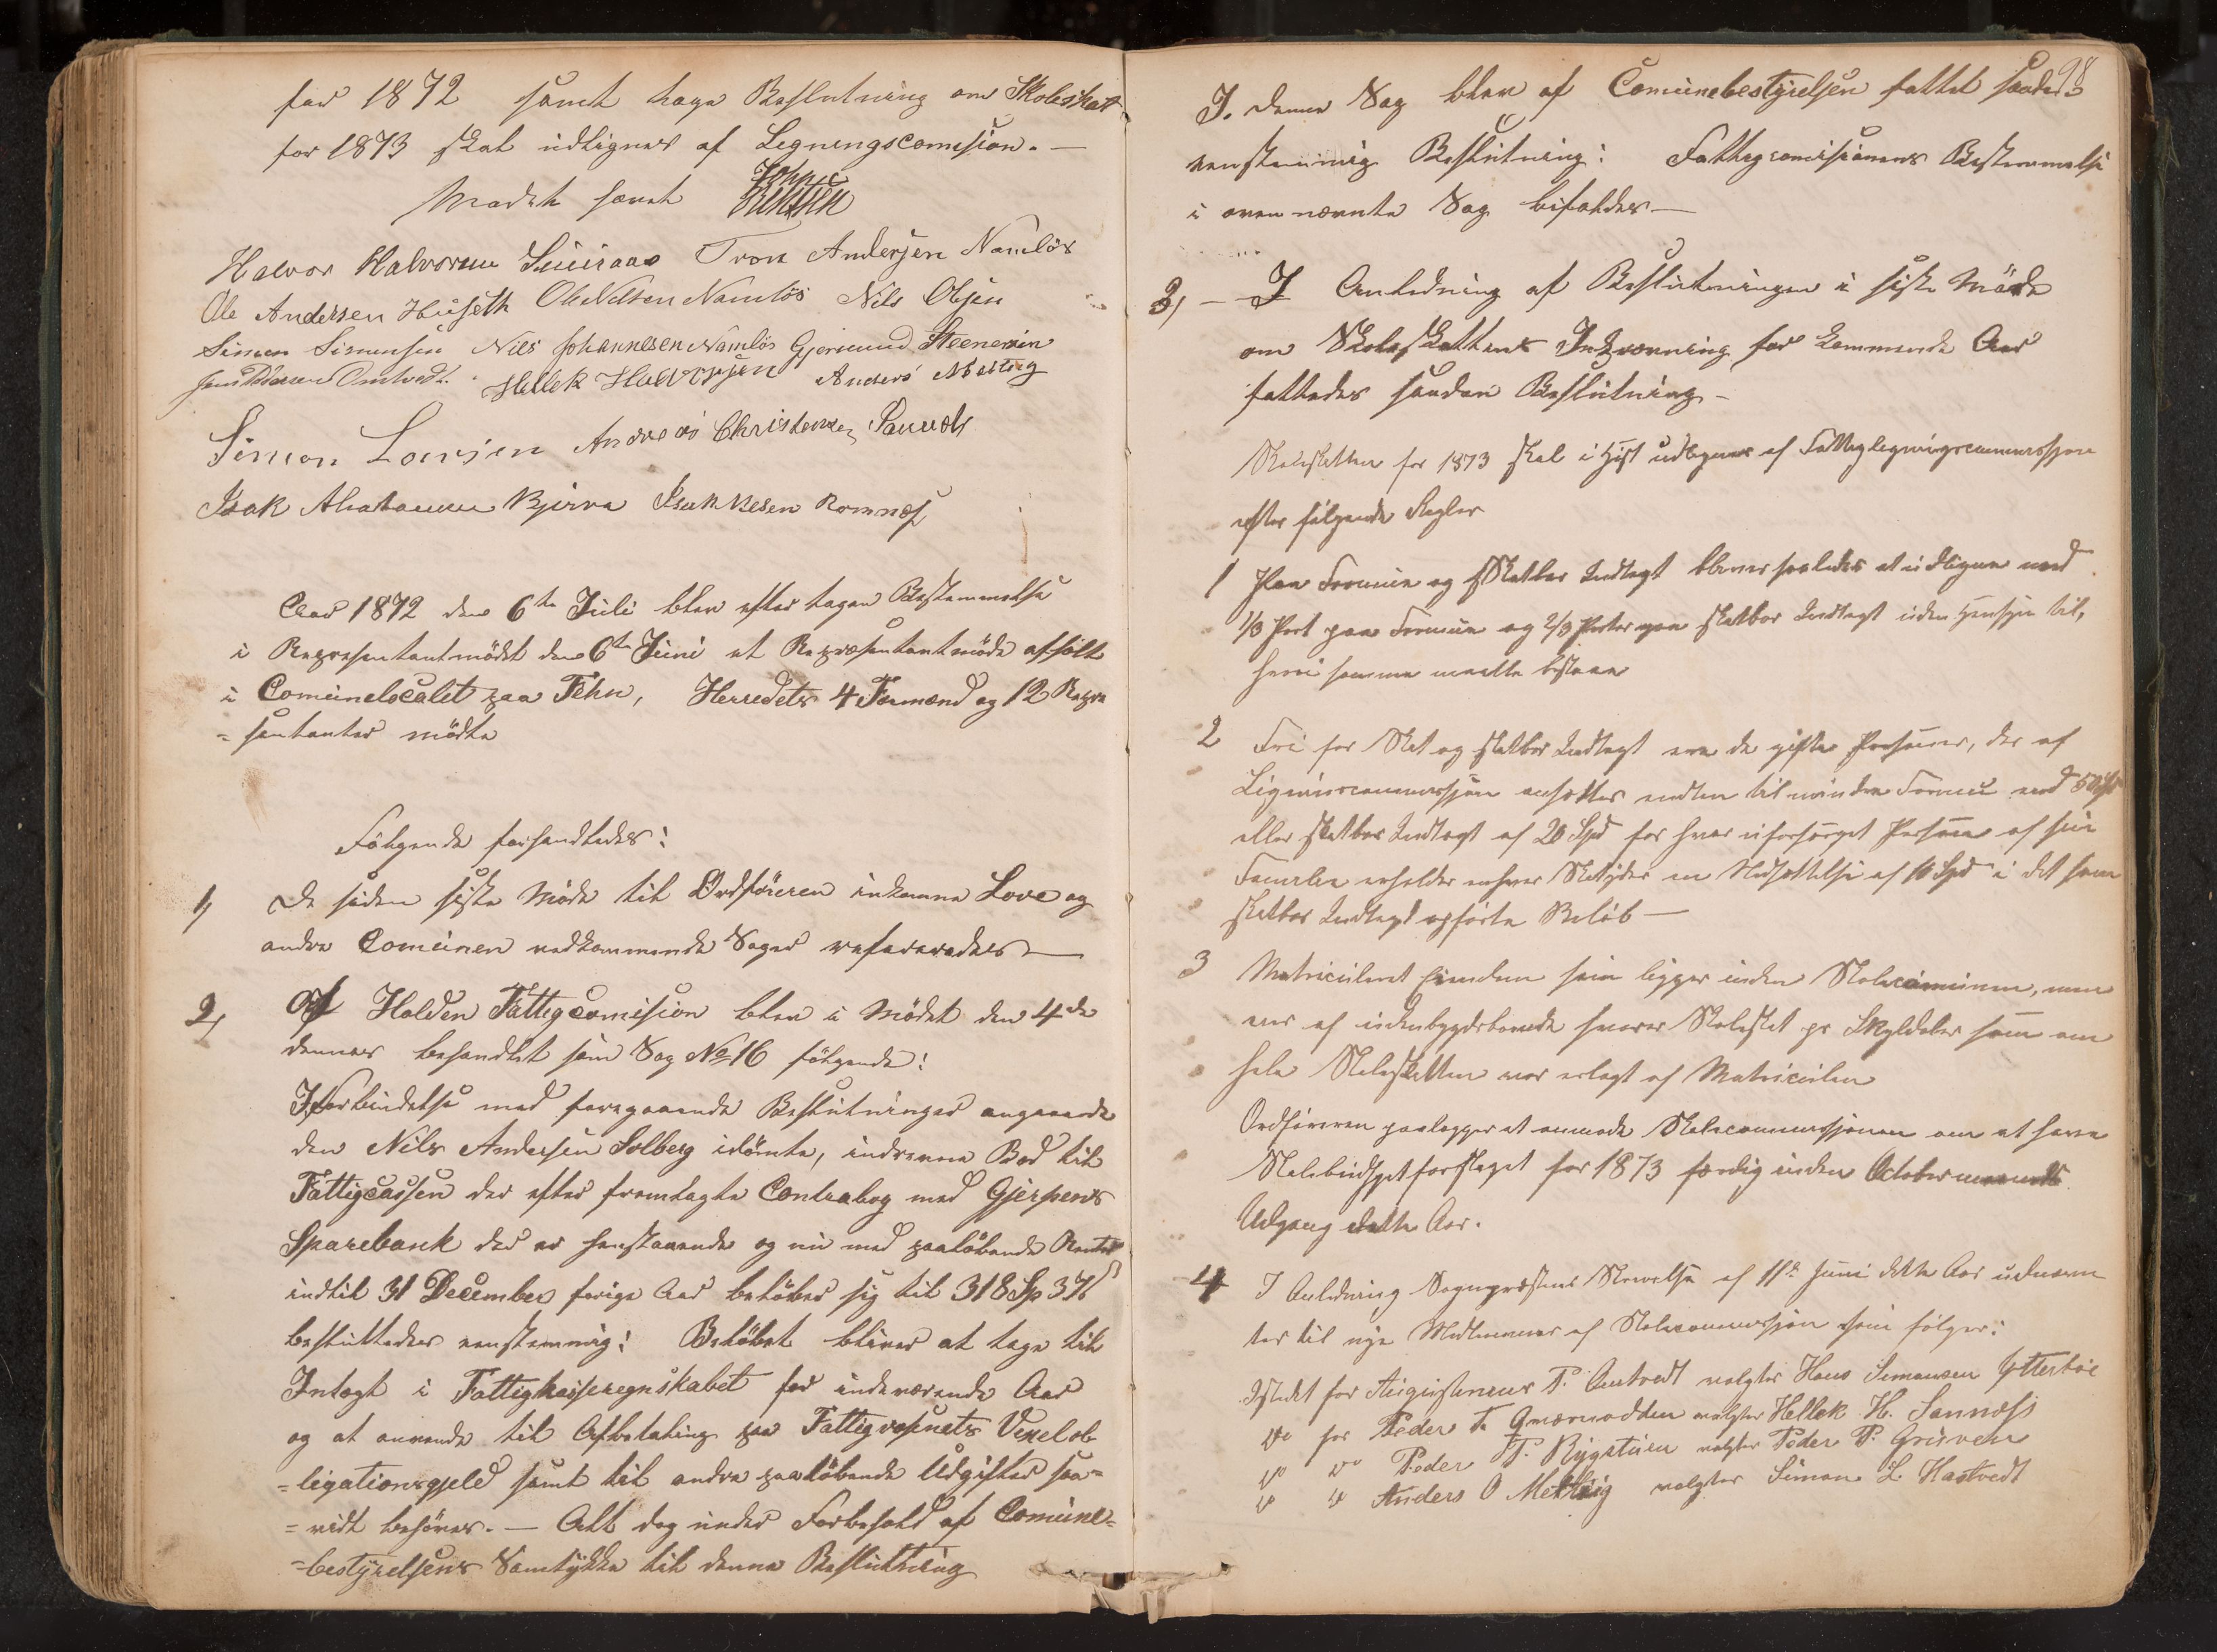 for 1872 samt tage Beslutning om Skoleskat
for 1873 skal udlignes af Legningscomision. —
Mødet hævet
Halvor Halvorsen Tron Andersen Namløs
Ole Andersen Huseth Ole Nelsen Namløs Nils Olsen
Simen Simensen Nils Johannesen Namløs Gjermund Steenerein
Jens Pedersen Omtvedt. Hellek Halvorsen Anders
Simon Larsen Andreas Christensen
Isak Abrahamsen Bjerva Isak Romnæs
Aar 1872 den 6te Juli blev efter tagen Bestemmelse
i Represæntantmødet den 6te Juni et Repræsentantmøde afholt
i Comunelocalet paa Fehn, Herredets 4 Formænd og 12 Repræ
= sentanter mødte
Følgende forhandledes:
1, De siden siste Møde til Ordføreren inkomne Love og
andre Comunen vedkommende Sager refereredes —
2, Af Holden Fattigcomision blev i Mødet den 4de
dennes behandlet som Sag No 16 følgende:
I Forbindelse med foregaaende Beslutninger angaaende
den Nils Andersen Solberg idømte, inddrevne Bod til
Fattigcassen der efter fremlagte Contrabog med Gjerpens
Sparebank der er henstaaende og nu med paaløbende Renter
indtil 31 December forige Aar beløber sig til 318 Sp 37 s
besluttedes enstemmig: Beløbet bliver at tage til
Intægt i Fattigkasseregnskabet for indeværende Aar
og at anvende til Afbetaling paa Fattigvæsnets Vexelob
=ligationsgjeld samt til andre paaløbende Udgifter saa=
=vidt behøves. — Alt dog under Forbehold af Comune=
=bestyrelsens Samtykke til denne Beslutning
98
I denne Sag blev af Comunebestyrelsen fattet saadan
enstemmig Beslutning: Fattigcomisionens Bestemmelse
i ovennævnte Sag bifaldes —
3, — I Anledning af Beslutningen i siste Møde
om Skoleskattens Inkrævning for kommende Aar
fattedes saadan Beslutning —
Skoleskatten for 1873 skal i Høst udlignes af Fattiglegningscommissjon
efter følgende Regler
1 Paa Formue og Skatbar Indtægt bliver saaledes at udligne med
1/3 Part paa Formue og 2/3 Parter paa skatbar Indtægt uden Hensyn til,
hvori samme maatte bestaae
2 Fri for Skat og skatbar Indtægt ere de gifte Personer, der af
Ligningscommissjon ansættes enten til mindre Formue end 50 Spd
eller skatbar Indtægt af 20 Spd for hver uforsørget Person af sin
Familie erholder enhver Skatyder en Nedsættelse af 10 Spd i det som
skatbar Indtægt opførte Beløb —
3 Matriculeret Eiendom som ligger inden Skolecomunen, men
eies af udenbygdsboende svarer Skoleskat pr Skylddaler som om
hele Skoleskatten var erlagt af Matriculen
Ordføreren paalægges at anmode Skolecommissjonen om at have
Skolebudgetforslaget for 1873 færdig inden Octobermaaneds
Udgang dette Aar.
4 I Anledning Sogneprestens Skrivelse af 11te Juni dette Aar udnævn
tes til nye Medlemmer af Skolecommissjon som følger:
Istedet for Augustinus P. Omtvedt valgtes Hans Simonsen Ytterbøe
do for Peder T. Qværnodden valgtes Hellek H. Sannæss
do do Peder T. Rygstuen valgtes Peder P. Gruven
do do Anders O valgtes Simon L. Hastvedt